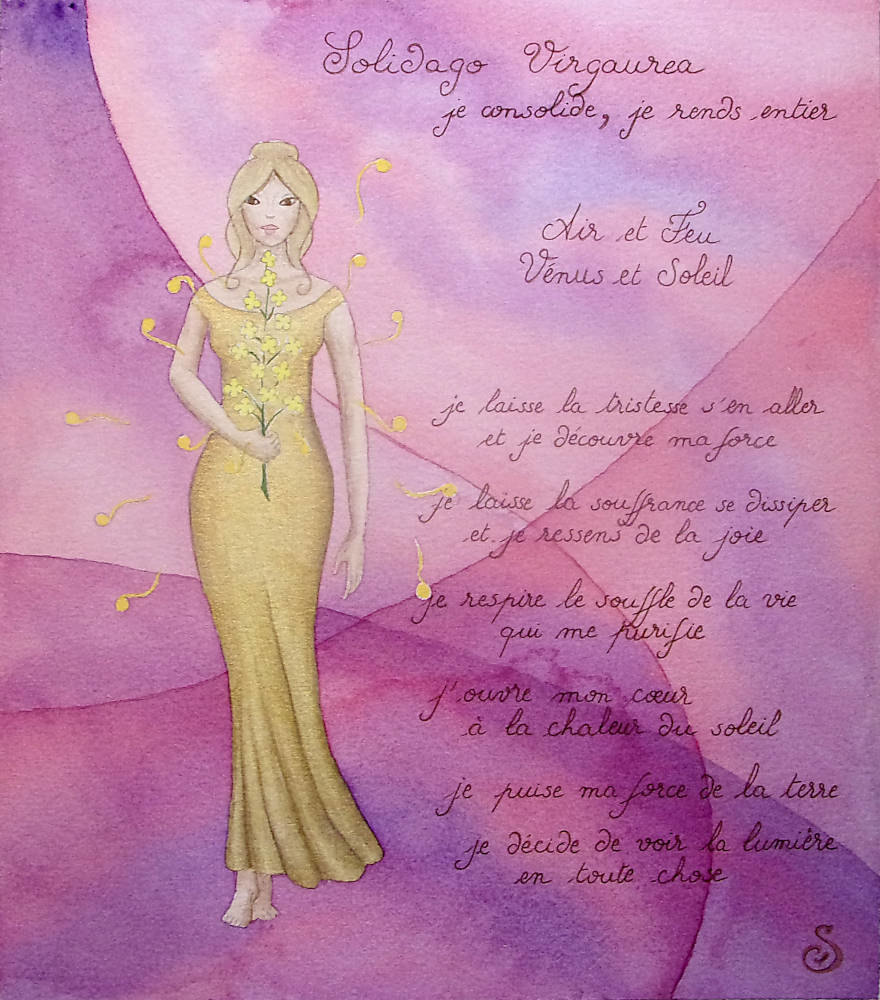 Solidago Virgaurea
je consolide, je rends entier
Air et Feu
Vénus et Soleil
je laisse la tristesse s'en aller
et je découvre ma force
je laisse la souffrance se dissiper
et je ressens de la joie
je respire le souffle de la vie
qui me purifie
j'ouvre mon cœur
à la chaleur du soleil
je puise ma force de la terre
je décide de voir la lumière
en toute chose
S